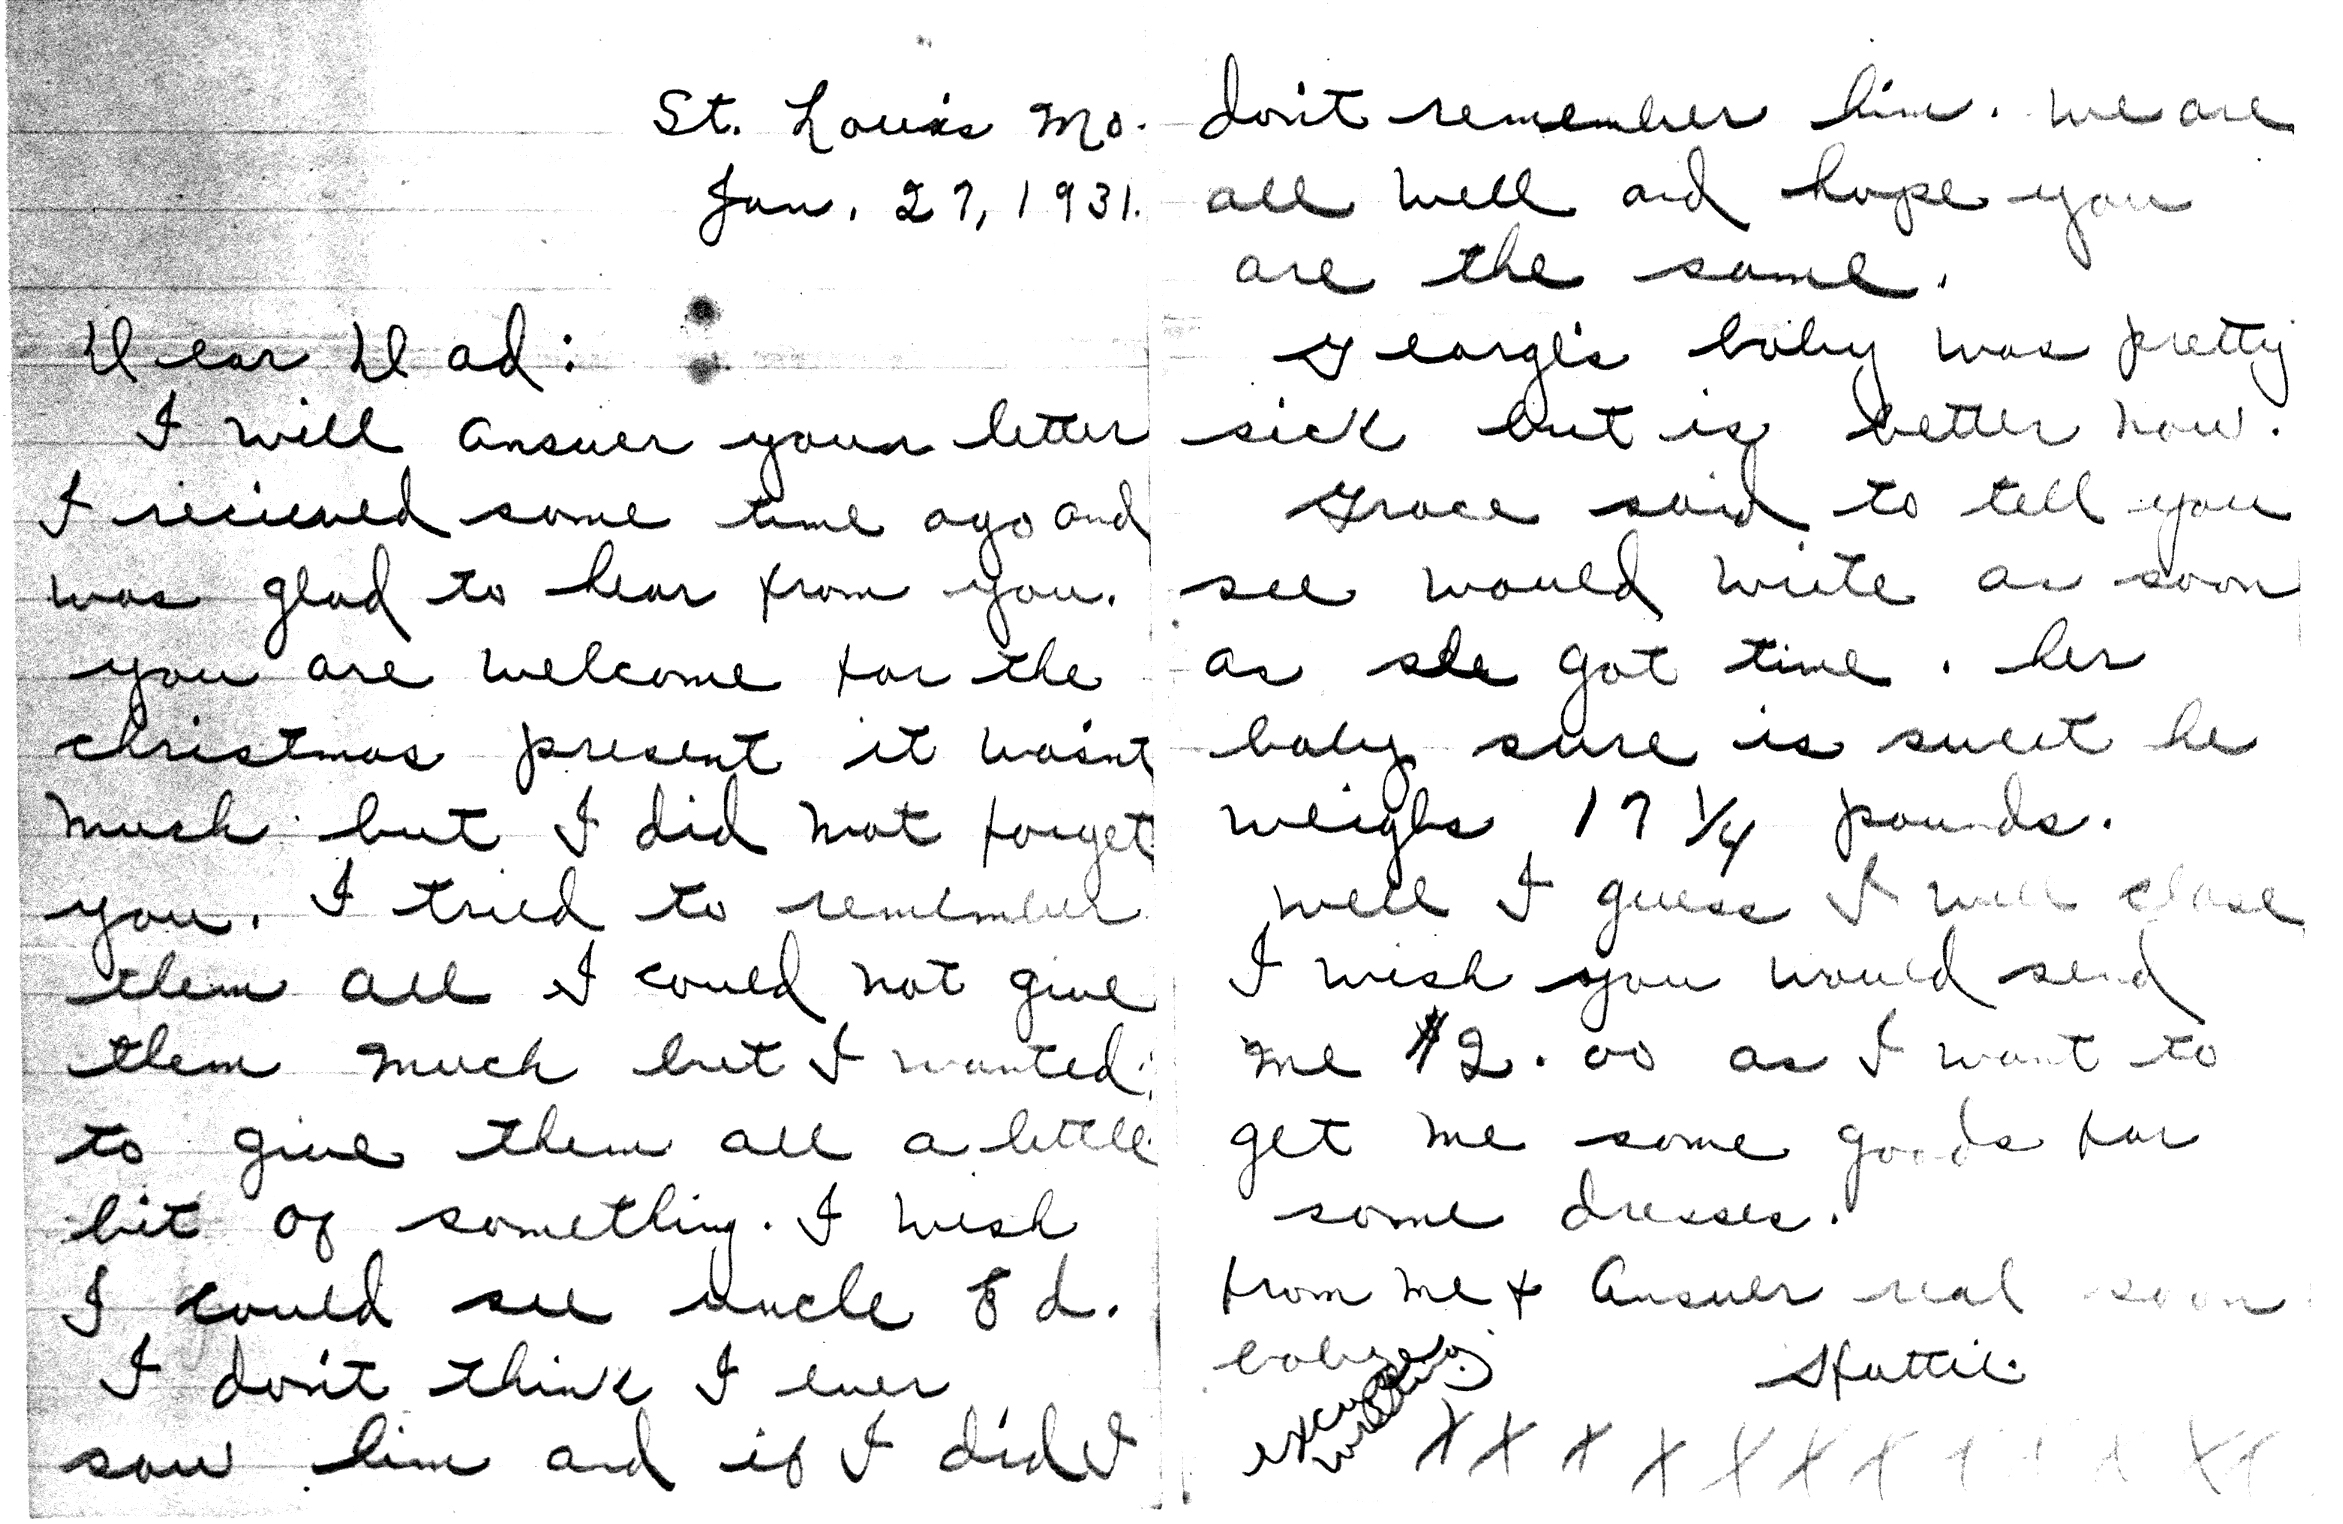 St. Louis Mo.
Jan. 27, 1931.
Dear Dad:
I will answer your letter
I recieved some time ago and
was glad to hear from you.
you are welcome for the
christmas present it wasn't
much but I did not forget
you. I tried to remember
them all I could not give
them much but I wanted
to give them all a little
bit of something. I wish
I could see uncle Ed.
I don't think I ever
saw him and if I did I
don't remember him. we are
all well and hope you
are the same.
George's baby was pretty
sick but is better now.
Grace said to tell you
see would write as soon
as she got time. her
baby sure is sweet he
weighs 17 1/4 pounds.
well I guess I will close
I wish you would send
me $2.00 as I want to
get me some goods for
some dresses.
from me + Answer real soon
baby Hattie.
excuse
writing
x x x x x x x x x x x x